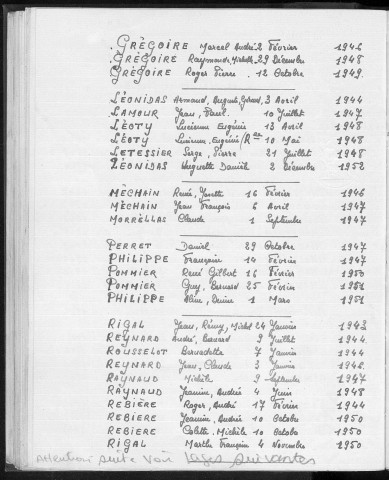 GRÉGOIRE Marcel André 2 Février 1946
GRÉGOIRE Raymonde, Michelle 29 Décembre 1948
GRÉGOIRE Roger Pierre 12 Octobre 1949
LÉONIDAS Armand, Auguste, Gérard 3 Avril 1944
LAMOUR Jean, Paul 10 Juillet 1947
LÉOTY Lucienne Eugénie 13 Avril 1948
LÉOTY Lucienne, Eugénie 10 Mai 1948
LETESSIER Serge, Pierre 21 Juillet 1948
LEONIDAS Huguette Danièle 2 Décembre 1952
MÉCHAIN René, Josette 16 Février 1946
MÉCHAIN Jean François 6 Avril 1947
MORRÉLLAS Claude 1 Septembre 1947
PERRET Daniel 29 Octobre 1947
PHILIPPE Françoise 14 Février 1947
POMMIER René Gilbert 16 Février 1950
POMMIER Guy, Bernard 25 Février 1951
PHILIPPE Denise 1 Mars 1951
RIGAL Jean, Rémy, Michel 24 Janvier 1943
REYNARD André, Bernard 9 Juillet 1944
ROUSSELOT Bernadette 7 Janvier 1944
REYNARD Jean, Claude 3 Janvier 1946
RAYNAUD Michèle 9 Septembre 1947
RAYNAUD Jeanine, Andrée 4 Juin 1948
REBIÈRE Roger, André 17 Février 1944
REBIERE Jeanine, Andrée 10 Octobre 1950
REBIERE Colette, Michèle 10 Octobre 1950
RIGAL Marthe Françoise 4 Novembre 1950
Attention suite voir pages suivantes